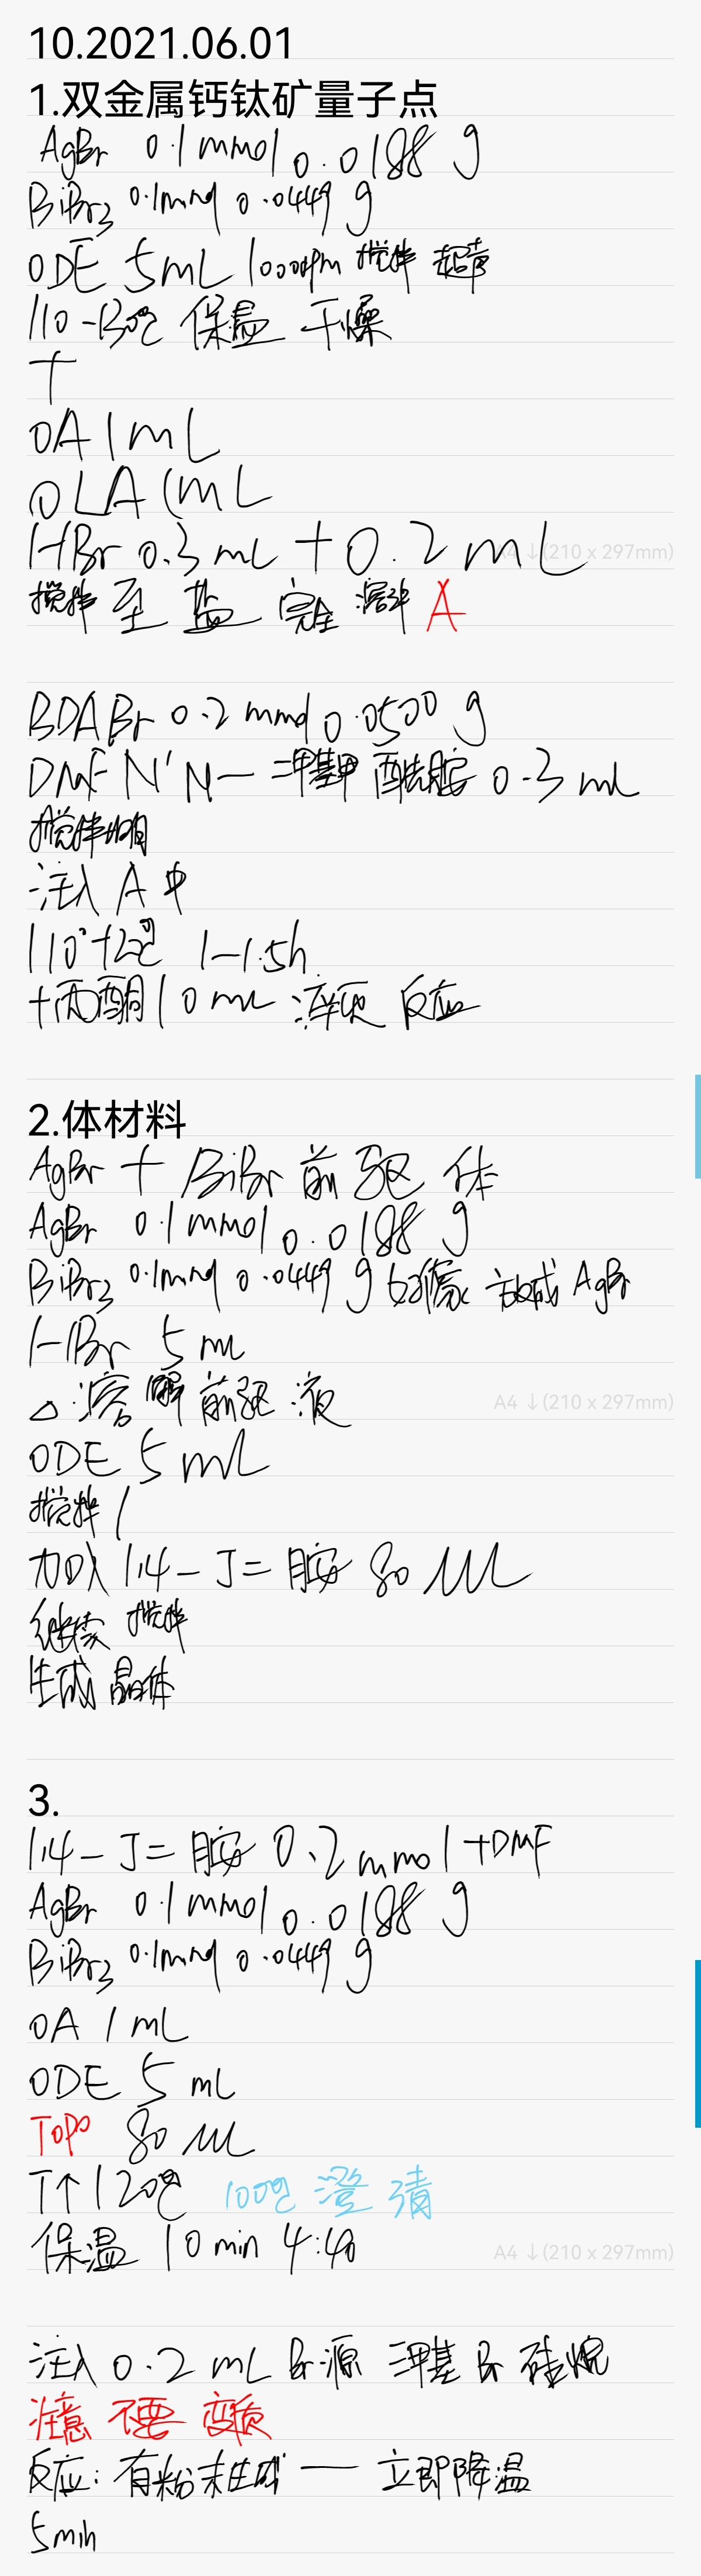 10.2021.06.01
1.双金属钙钛矿量子点
AgBr 0.1mmol 0.0188 g
BiBr3 0.1mmol 0.0449 g
ODE 5mL 1000rpm 搅拌 超声
110-130℃ 保温 干燥
+
OA 1mL
OLA 1mL
HBr 0.3mL + 0.2mL
A4 ↓(210 x 297mm)
搅拌 至 盐 完全 溶解 A
BDABr 0.2mmol 0.0500 g
DMF N'N—二甲基甲酰胺 0.3mL
搅拌
注入 A 中
110°-120℃ 1-1.5h
+丙酮10mL 淬灭 反应
2.体材料
AgBr + BiBr 前驱体
AgBr 0.1mmol 0.0188 g
BiBr3 0.1mmol 0.0449 g AgBr
HBr 5ml
△溶解前驱液
A4 ↓(210 x 297mm)
ODE 5mL
搅拌
加入 1,4-丁二胺 80uL
继续 搅拌
生成 晶体
3.
1,4-丁二胺 0.2mmol +DMF
AgBr 0.1mmol 0.0188 g
BiBr3 0.1mmol 0.0449 g
OA 1mL
ODE 5mL
TOPO 80uL
T↑120℃ 100℃ 澄清
保温 10min 4:40
A4 ↓(210 x 297mm)
注入 0.2mL Br源 三甲基Br硅烷
注意 不要 变质
反应：有粉末生成 — 立即降温
5min